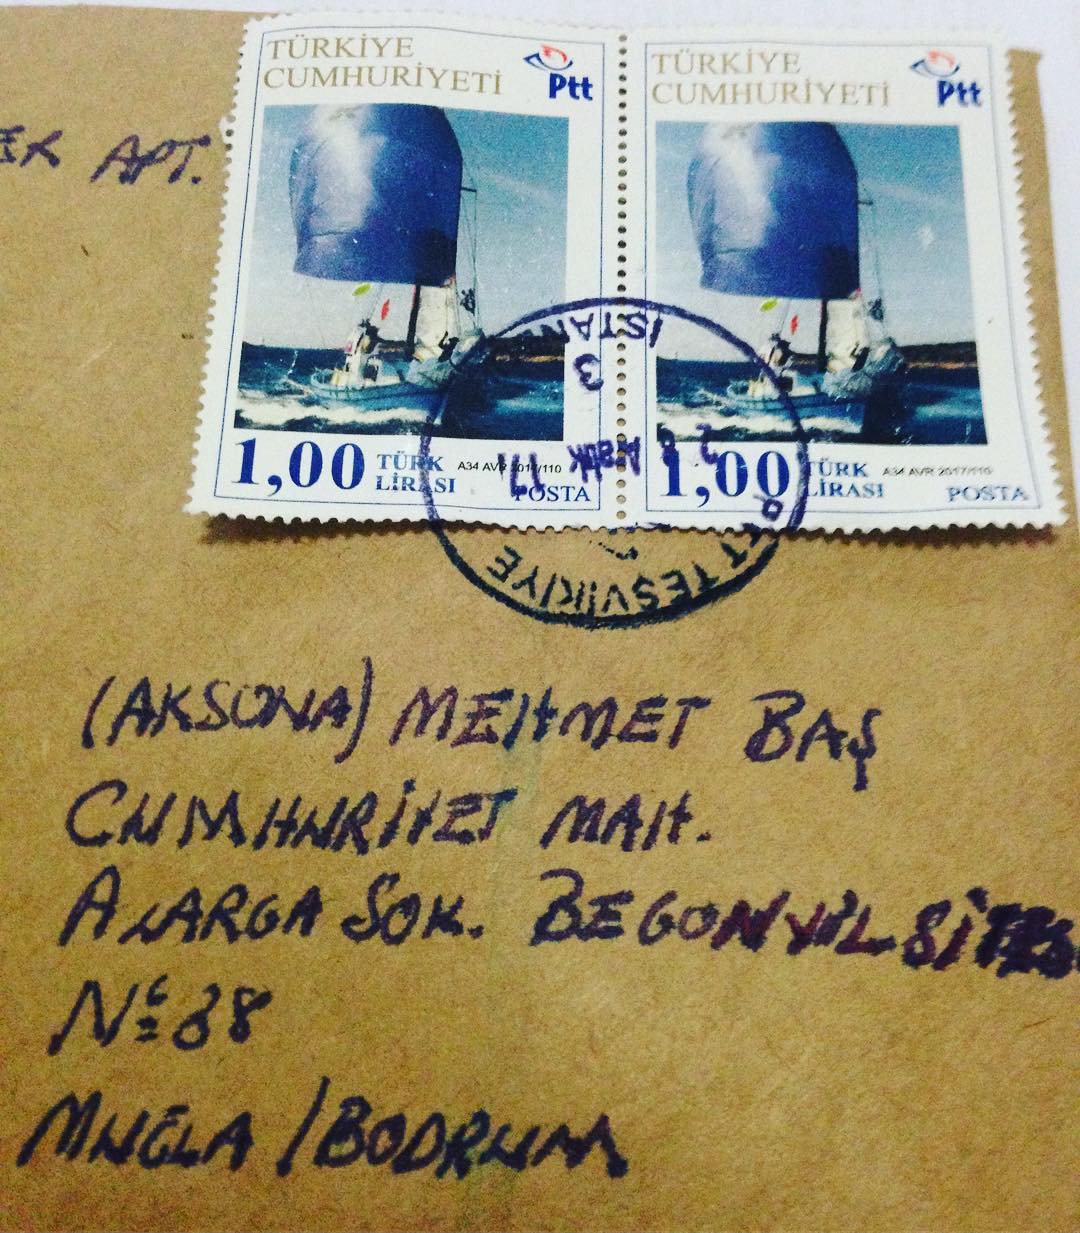 TÜRKİYE
CUMHURİYETİ
Ptt
TÜRKİYE
CUMHURİYETİ
Ptt
APT.
1,00 TÜRK
LİRASI
A34 AVR 2017/110
POSTA
1,00 TÜRK
LİRASI
A34 AVR 2017/110
POSTA
İSTAN
3
28 Aralık 17
PTT TEŞVİKİYE
(AKSONA) MEHMET BAŞ
CUMHURİYET MAH.
ALARGA SOK. BEGONVİL SİTES
Nº 38
MUGLA / BODRUM